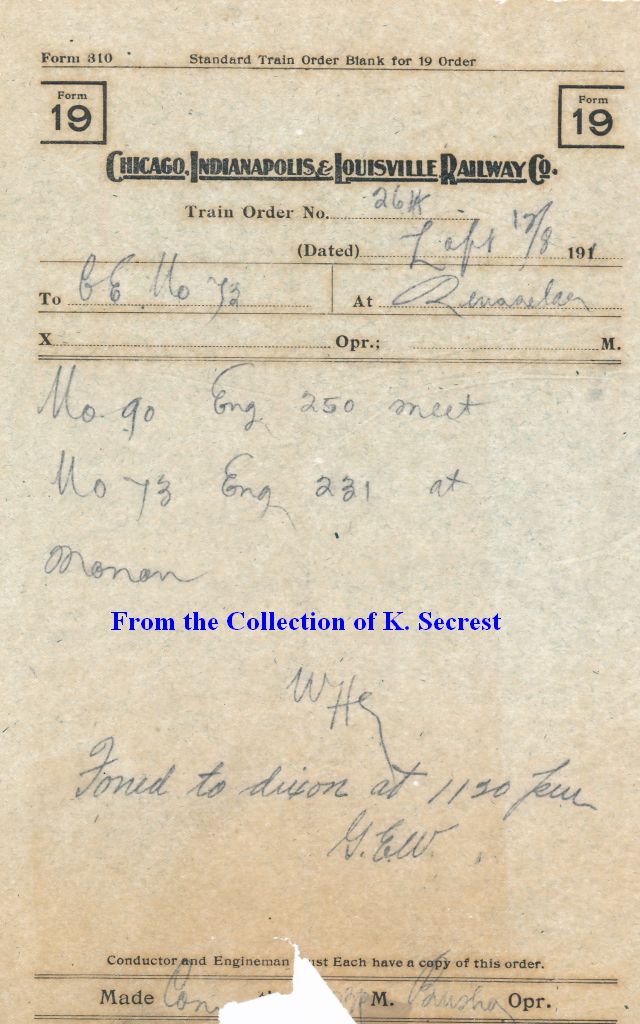 Form 310 Standard Train Order Blank for 19 Order
Form 19 Form 19
CHICAGO, INDIANAPOLIS & LOUISVILLE RAILWAY CO.
Train Order No. 26
(Dated) Sept 191
To C E No 73 At Rensselaer
X Opr.; M.
No. 90 Eng 250 meet
No 73 Eng 231 at
Monon
From the Collection of K. Secrest
Foned to dixon at 1120
G.E.W.
Conductor and Engineman Must Each have a copy of this order.
Made Com M. Opr.